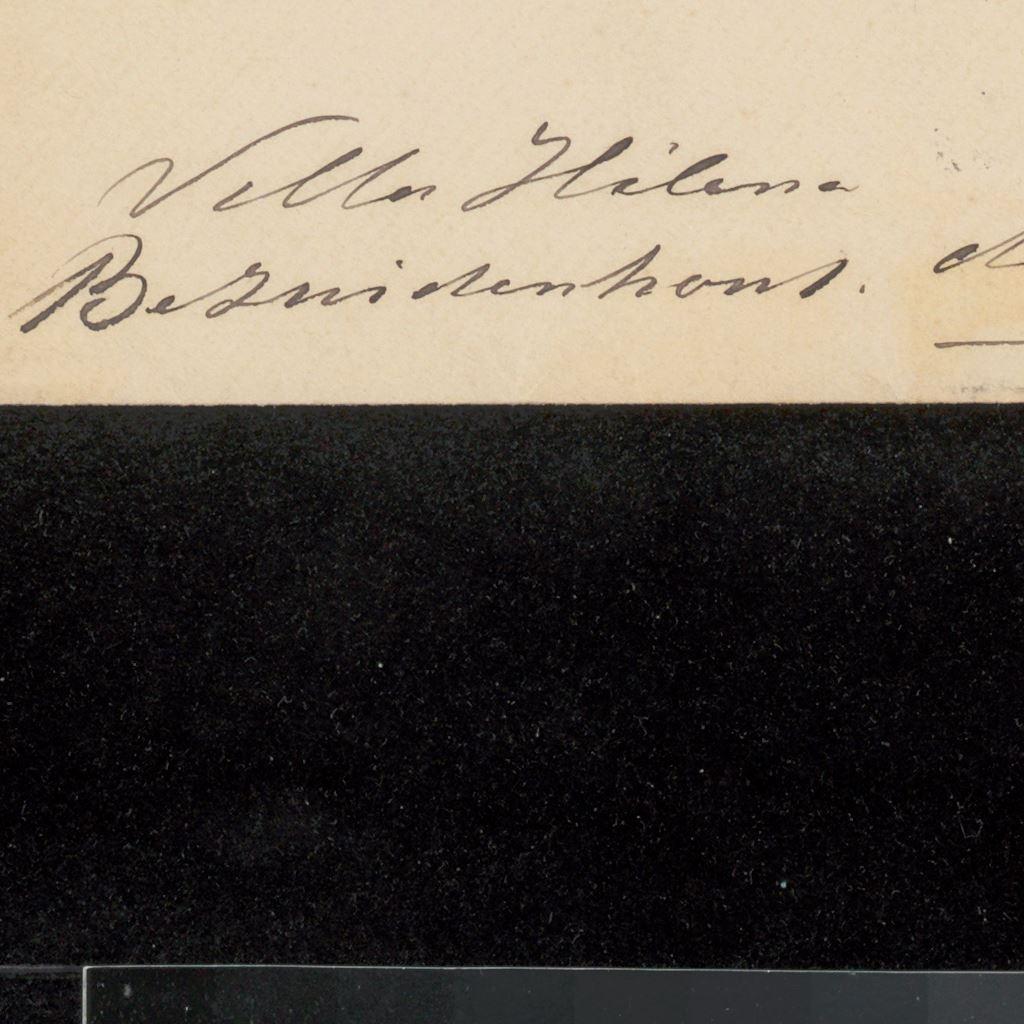 Villa Hélena
Bezuidenhout.